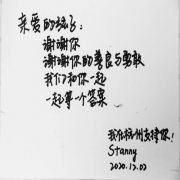 亲爱的弦子：
谢谢你
谢谢你的善良与勇敢
我们和你一起
一起等一个答案
我在杭州支持你！
Stanny
2020.12.02